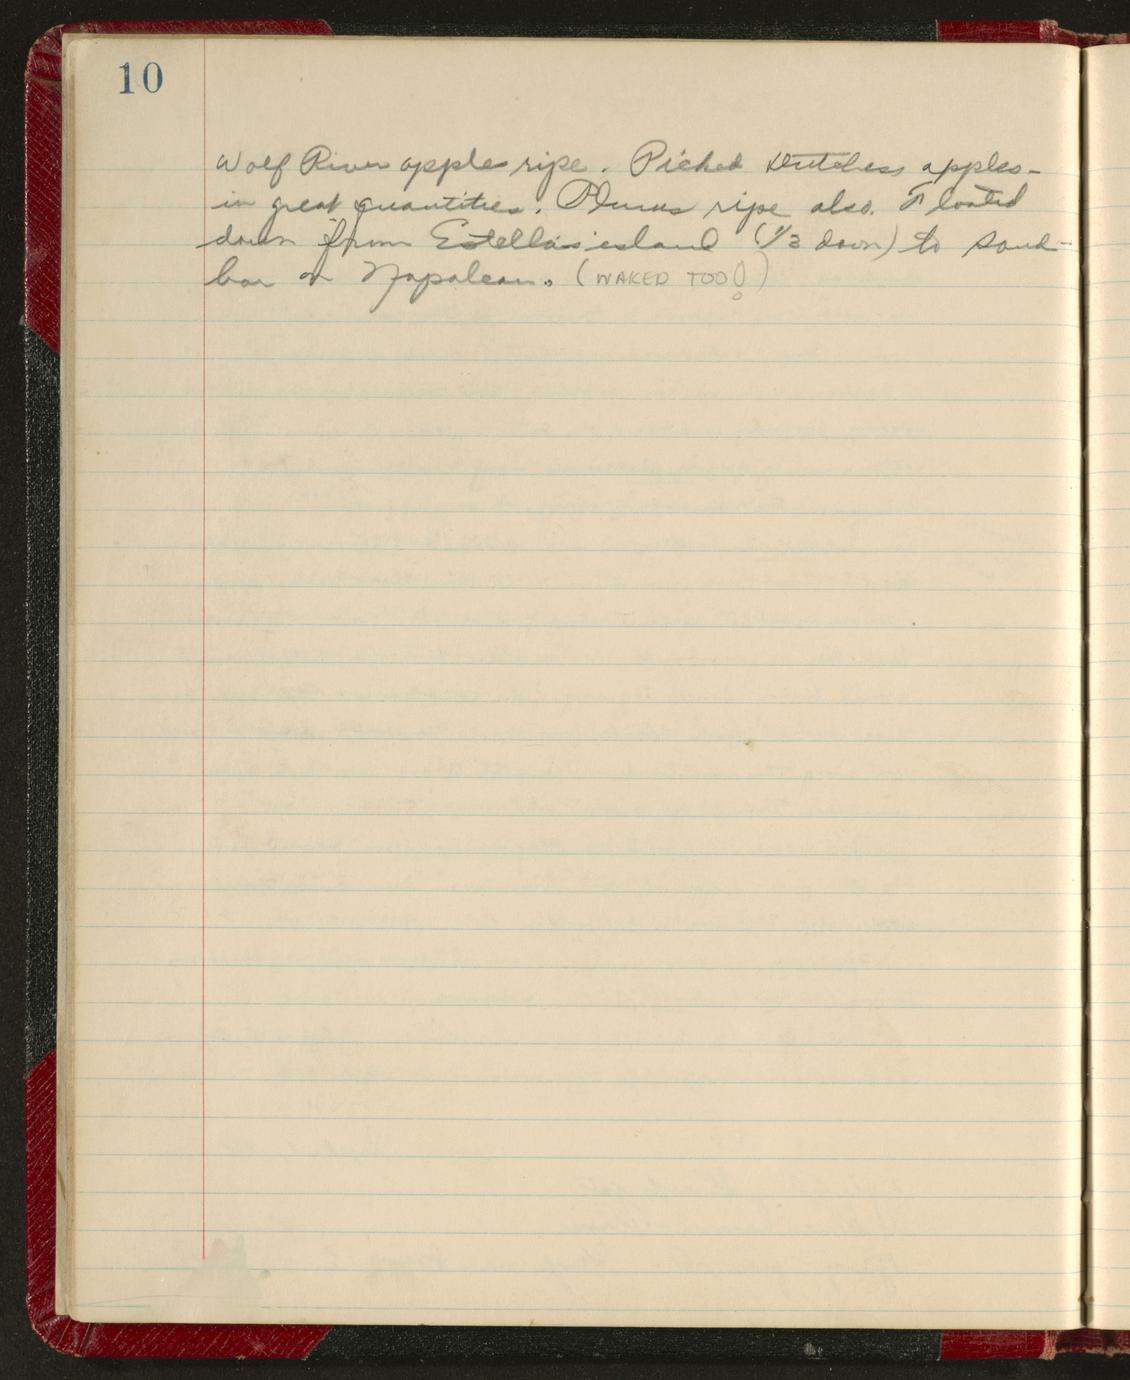 10
Wolf River apple ripe. Picked Dutchess apples-
in great quantities. Plums ripe also. Floated
down from Estella's island (1/3 down) to sand-
bar on Napolean. (WAKED TOO!)